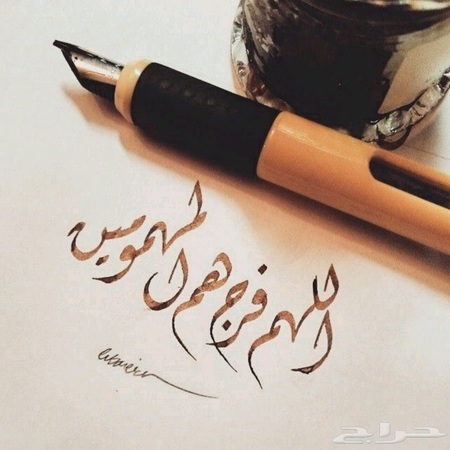 اللهم فرج هم المهمومين
حراج